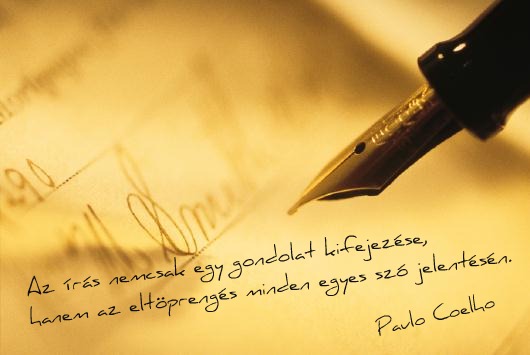 Az írás nemcsak egy gondolat kifejezése,
hanem az eltöprengés minden egyes szó jelentésén.
Paulo Coelho